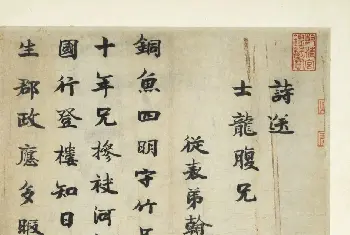 詩送
士龍腹兄
從表弟翰
銅魚四明字竹
十年兄摻袂河
國行登樓知日
生郡政應多暇